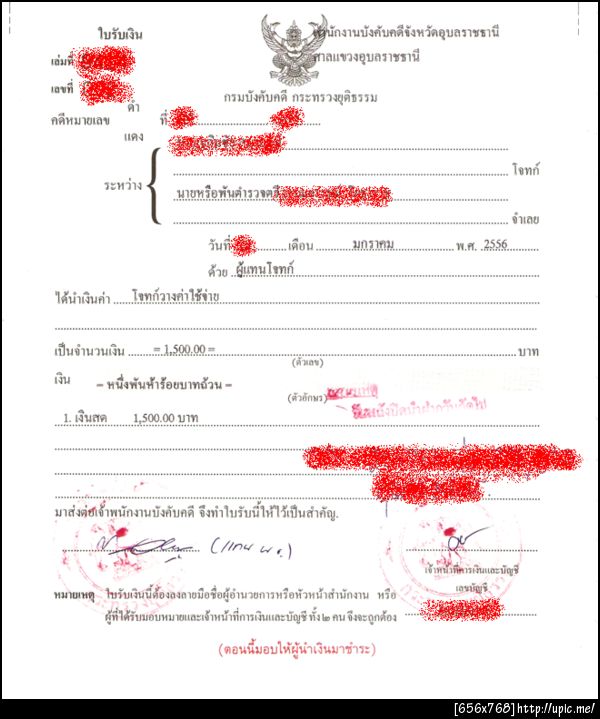 ใบรับเงิน
สำนักงานบังคับคดีจังหวัดอุบลราชธานี
เล่มที่
ศาลแขวงอุบลราชธานี
เลขที่
กรมบังคับคดี กระทรวงยุติธรรม
ดำ
คดีหมายเลข ที่
แดง
โจทก์
ระหว่าง
นายหรือพันตำรวจตรี
จำเลย
วันที่ เดือน มกราคม พ.ศ. 2556
ด้วย ผู้แทนโจทก์
ได้นำเงินค่า โจทก์วางค่าใช้จ่าย
เป็นจำนวนเงิน = 1,500.00 = บาท
(ตัวเลข)
เงิน = หนึ่งพันห้าร้อยบาทถ้วน =
(ตัวอักษร)
1. เงินสด 1,500.00 บาท
มาส่งต่อเจ้าพนักงานบังคับคดี จึงทำใบรับนี้ให้ไว้เป็นสำคัญ.
(แทน ผ.อ.)
เจ้าหน้าที่การเงินและบัญชี
เลขบัญชี
หมายเหตุ ใบรับเงินนี้ต้องลงลายมือชื่อผู้อำนวยการหรือหัวหน้าสำนักงาน หรือ
ผู้ที่ได้รับมอบหมายและเจ้าหน้าที่การเงินและบัญชี ทั้ง ๒ คน จึงจะถูกต้อง
(ตอนนี้มอบให้ผู้นำเงินมาชำระ)
[656x768] http://upic.me/